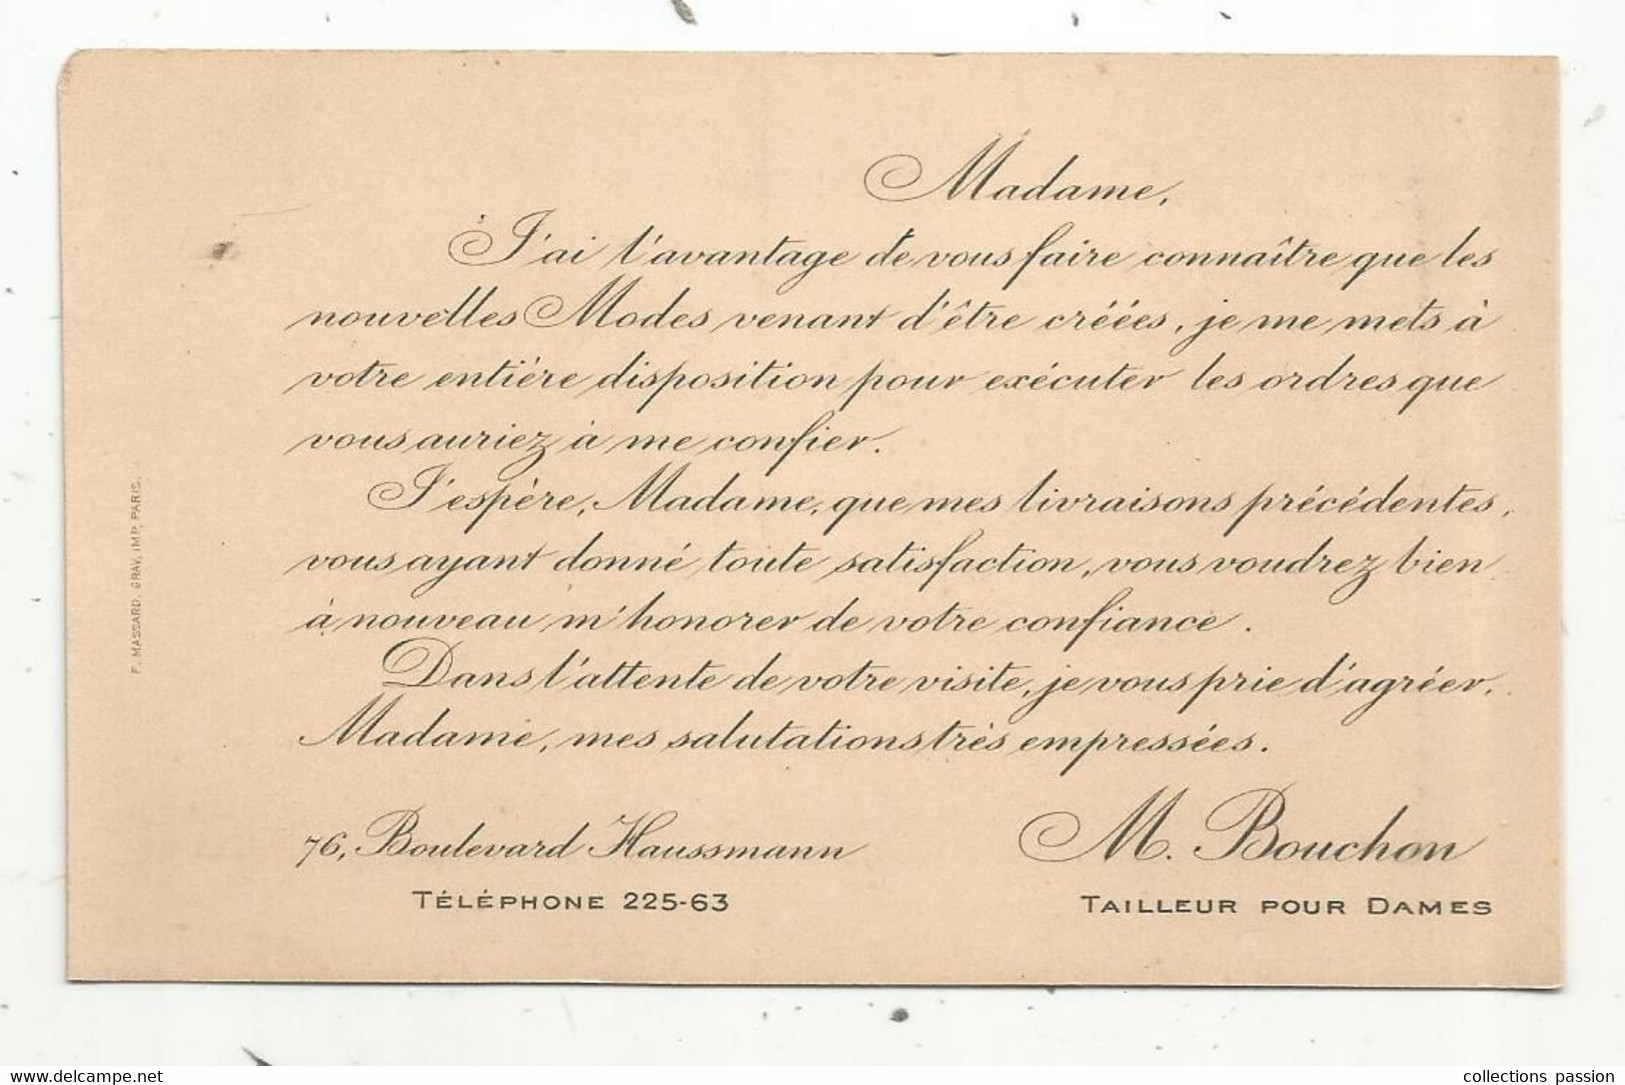 Madame,
J'ai l'avantage de vous faire connaître que les
nouvelles Modes venant d'être créées, je me mets à
votre entière disposition pour exécuter les ordres que
vous auriez à me confier.
J'espère, Madame, que mes livraisons précédentes,
vous ayant donné toute satisfaction, vous voudrez bien
à nouveau m'honorer de votre confiance.
Dans l'attente de votre visite, je vous prie d'agréer,
Madame, mes salutations très empressées.
76, Boulevard Haussmann
TÉLÉPHONE 225-63
M. Bouchon
TAILLEUR POUR DAMES
F. MASSARD, GRAV, IMP, PARIS.
www.delcampe.net
collections passion